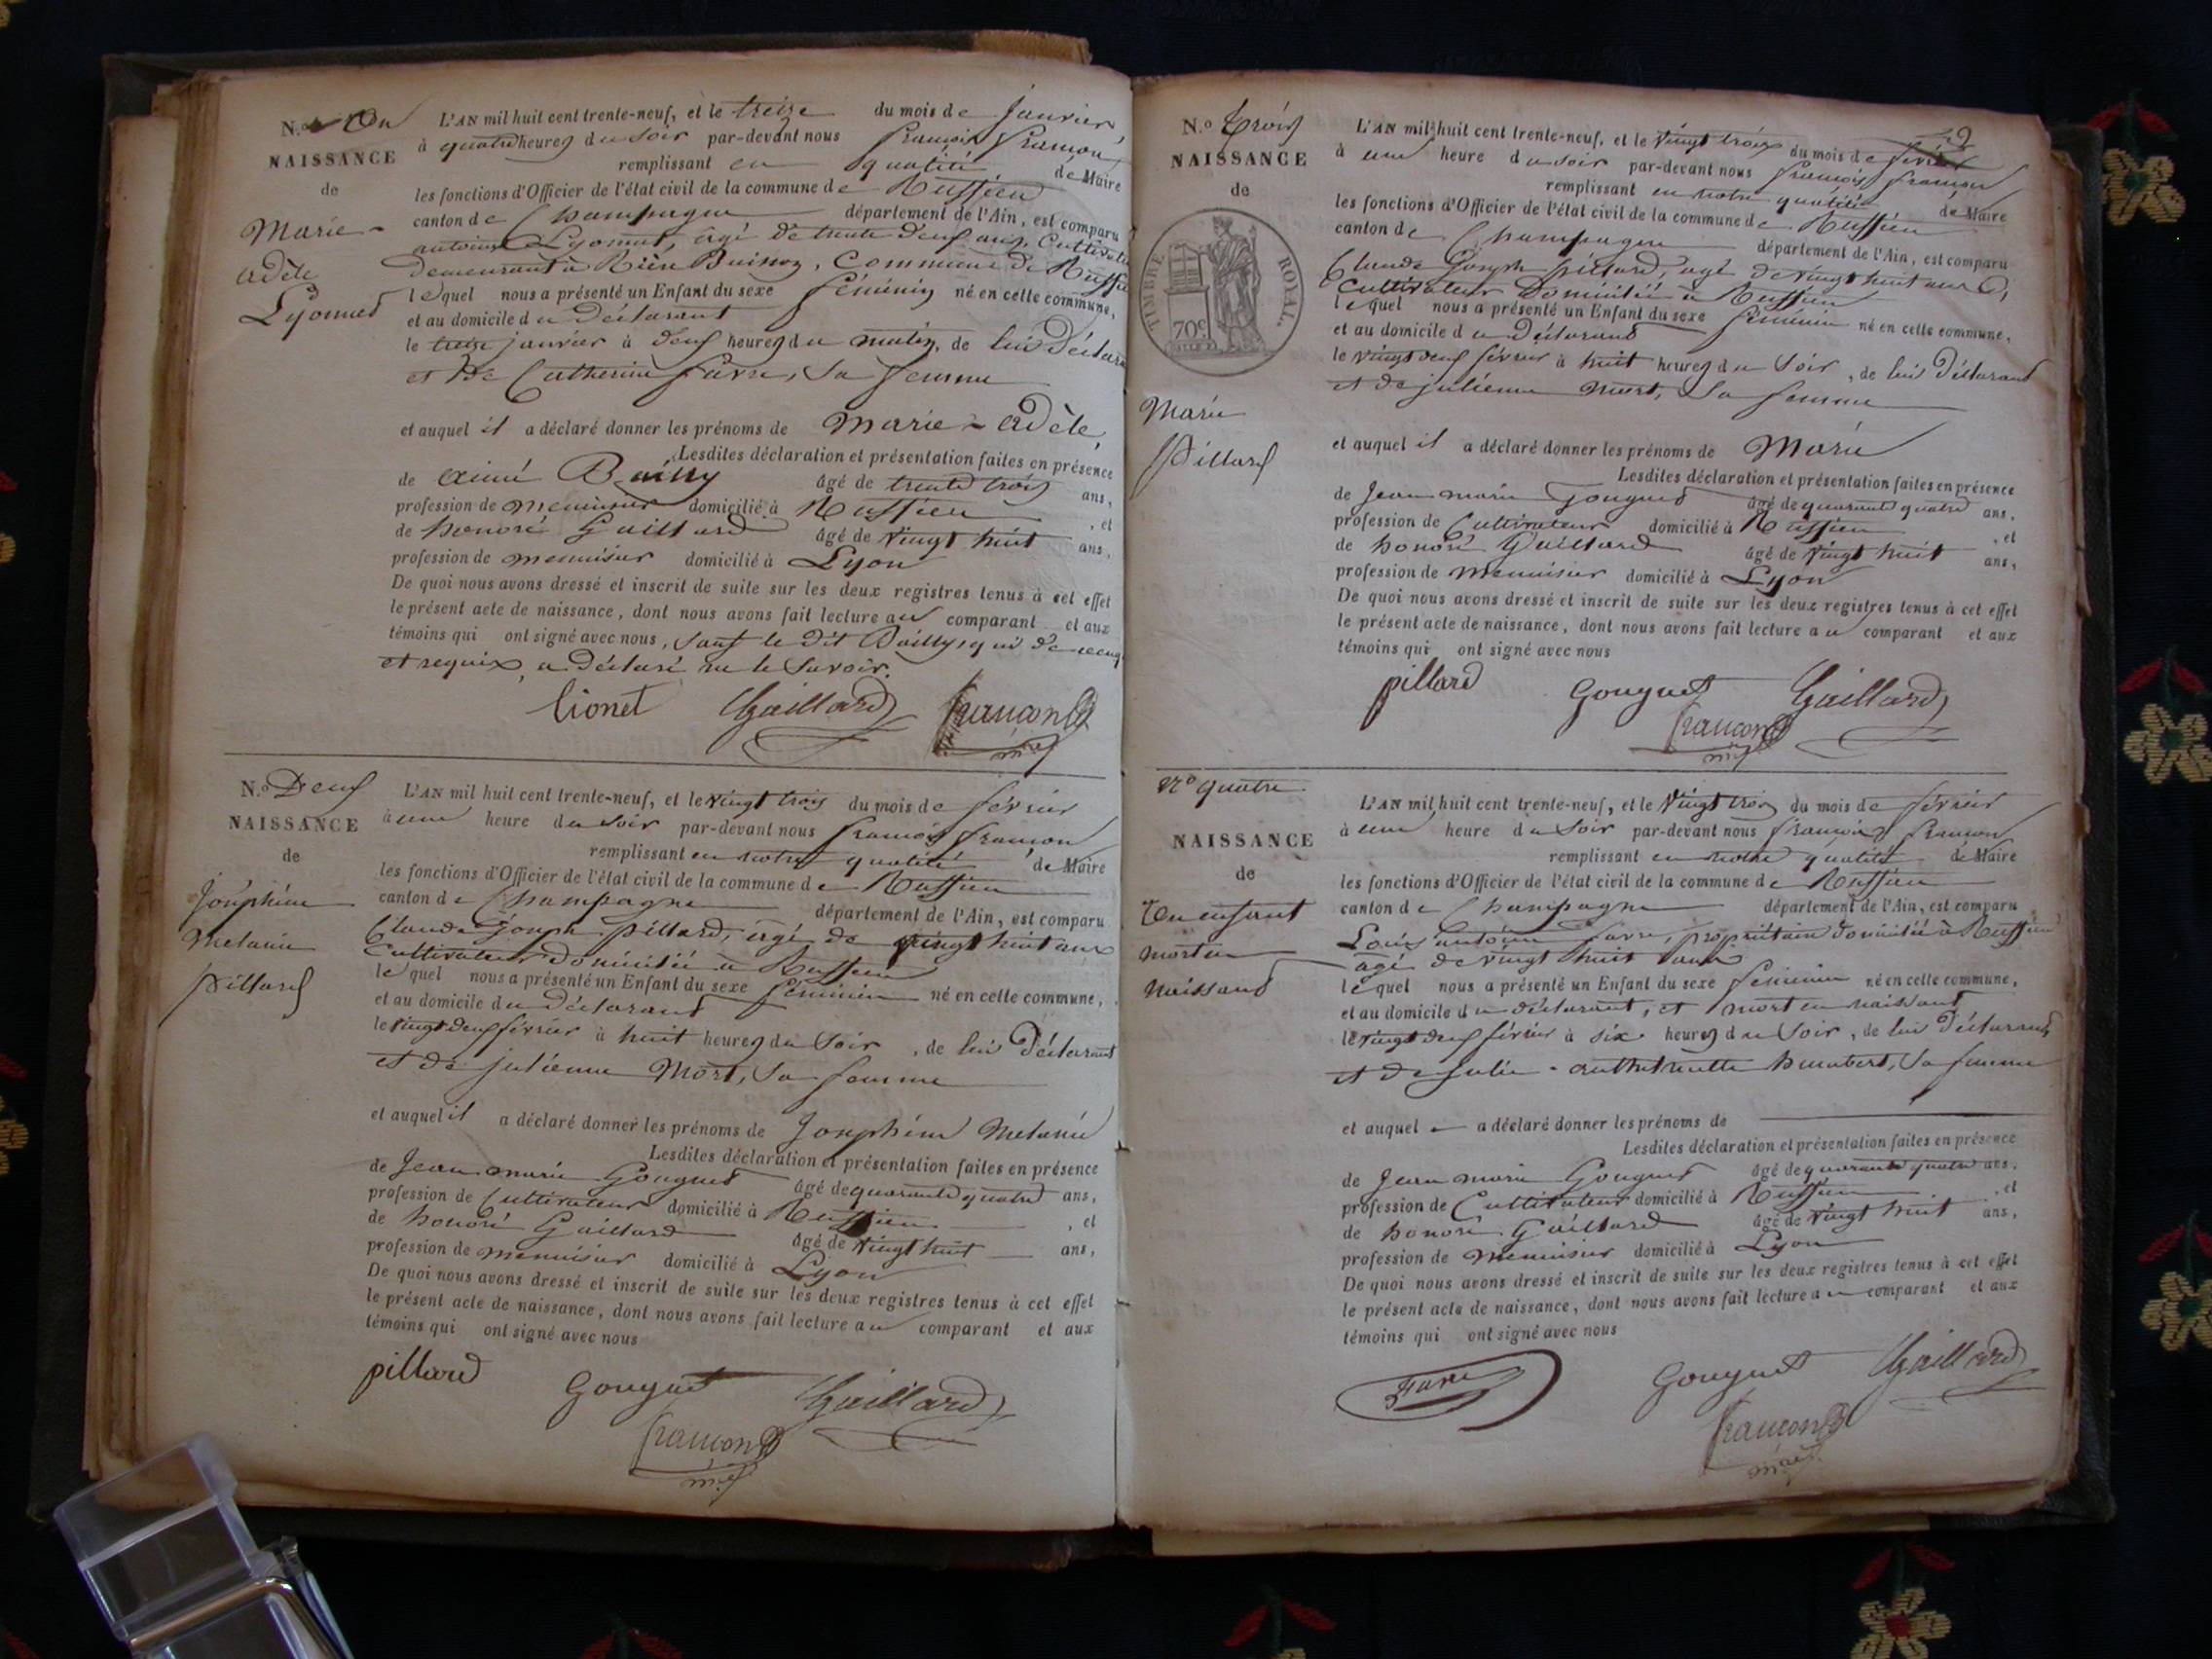 N.o Un
NAISSANCE
de
Marie-
adèle
Lyonnet
L'AN mil huit cent trente-neuf, et le treize du mois de Janvier,
à quatre heures du soir par-devant nous françois francon
remplissant en qualité de Maire
les fonctions d'Officier de l'état civil de la commune de Ruffieu
canton de Champagne département de l'Ain, est comparu
antoine Lyonnet, âgé de trente deux ans, Cultivateur
demeurant à Commune de Ruffieu
lequel nous a présenté un Enfant du sexe féminin né en cette commune,
et au domicile du déclarant
le treize janvier à deux heures du matin, de lui déclarant
et de Catherine favre, sa femme
et auquel il a déclaré donner les prénoms de Marie-adèle,
Lesdites déclaration et présentation faites en présence
de aimé Bailly âgé de trente trois ans,
profession de menuisier domicilié à Ruffieu, et
de honoré Gaillard âgé de vingt huit ans,
profession de menuisier domicilié à Lyon
De quoi nous avons dressé et inscrit de suite sur les deux registres tenus à cet effet
le présent acte de naissance, dont nous avons fait lecture au comparant et aux
témoins qui ont signé avec nous, sauf le dit Bailly, qui de ce enq
et requix, a déclaré ne le savoir.
lionet Gaillard francon
N.o Deux
NAISSANCE
de
Joséphine
Melanie
Pillard
L'AN mil huit cent trente-neuf, et le vingt trois du mois de février
à une heure du soir par-devant nous françois francon
remplissant en notre qualité de Maire
les fonctions d'Officier de l'état civil de la commune de Ruffieu
canton de Champagne département de l'Ain, est comparu
Claude Joseph pillard, âgé de vingt huit ans
Cultivateur domicilié à Ruffieu
lequel nous a présenté un Enfant du sexe féminin né en cette commune,
et au domicile du déclarant
le vingt deux février à huit heures du soir, de lui déclarant
et de julienne Mort, sa femme
et auquel il a déclaré donner les prénoms de Joséphine Melanie
Lesdites déclaration et présentation faites en présence
de Jean marie Gouguet âgé de quarante quatre ans,
profession de Cultivateur domicilié à Ruffieu, et
de honoré Gaillard âgé de vingt huit ans,
profession de menuisier domicilié à Lyon
De quoi nous avons dressé et inscrit de suite sur les deux registres tenus à cet effet
le présent acte de naissance, dont nous avons fait lecture au comparant et aux
témoins qui ont signé avec nous
pillard Gouguet Gaillard
francon
N.o trois
NAISSANCE
de
TIMBRE ROYAL.
70c
Marie
Pillard
2
L'AN mil huit cent trente-neuf, et le vingt trois du mois de février
à une heure du soir par-devant nous françois francon
remplissant en notre qualité de Maire
les fonctions d'Officier de l'état civil de la commune de Ruffieu
canton de Champagne département de l'Ain, est comparu
Claude Joseph pillard, âgé de vingt huit ans,
Cultivateur domicilié à Ruffieu
lequel nous a présenté un Enfant du sexe féminin né en cette commune,
et au domicile du déclarant
le vingt deux février à huit heures du soir, de lui déclarant
et de julienne mort, sa femme
et auquel il a déclaré donner les prénoms de Marie
Lesdites déclaration et présentation faites en présence
de Jean marie Gouguet âgé de quarante quatre ans,
profession de Cultivateur domicilié à Ruffieu, et
de honoré Gaillard âgé de vingt huit ans,
profession de menuisier domicilié à Lyon
De quoi nous avons dressé et inscrit de suite sur les deux registres tenus à cet effet
le présent acte de naissance, dont nous avons fait lecture au comparant et aux
témoins qui ont signé avec nous
pillard Gouguet Gaillard
francon
N.o quatre
NAISSANCE
de
Un enfant
mort en
naissant
L'AN mil huit cent trente-neuf, et le vingt trois du mois de février
à une heure du soir par-devant nous françois francon
remplissant en notre qualité de Maire
les fonctions d'Officier de l'état civil de la commune de Ruffieu
canton de Champagne département de l'Ain, est comparu
Louis antoine favre, propriétaire domicilié à Ruffieu
âgé de vingt huit ans
lequel nous a présenté un Enfant du sexe féminin né en cette commune,
et au domicile du déclarant, et mort en naissant
le vingt deux février à six heures du soir, de lui déclarant
et de Julie humbert, sa femme
et auquel a déclaré donner les prénoms de
Lesdites déclaration et présentation faites en présence
de Jean marie Gouguet âgé de quarante quatre ans,
profession de Cultivateur domicilié à Ruffieu, et
de honoré Gaillard âgé de vingt huit ans,
profession de menuisier domicilié à Lyon
De quoi nous avons dressé et inscrit de suite sur les deux registres tenus à cet effet
le présent acte de naissance, dont nous avons fait lecture au comparant et aux
témoins qui ont signé avec nous
Favre Gouguet Gaillard
francon